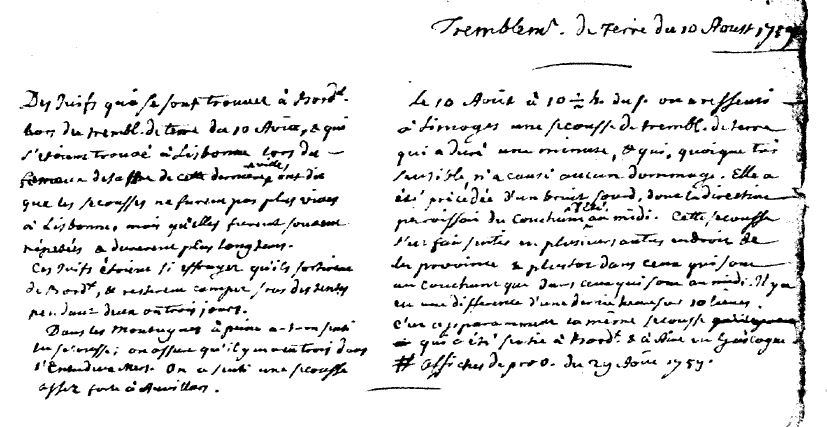 Tremblem.t de Terre du 10 Aoust 1759
Des Juifs qui se sont trouvez à Bord.x
lors du trembl. de terre du 10 Août, & qui
s'etoient trouvé à Lisbonne lors du
fameux desastre de cette derniere ville, ont dit
que les secousses ne furent pas plus vives
à Lisbonne, mais qu'elles furent souvent
répétées & durerent plus longtems.
Ces Juifs étoient si effrayez qu'ils sortirent
de Bord.x, & resterent camper sous des tentes
pendant deux ou trois jours.
Dans les Montagnes à peine a-t-on senti
la secousse; on assure qu'il y en a eu trois dans
l'Entre deux Mers. On a senti une secousse
assez forte à Auvillar.
Le 10 Août à 10 ½ h. du s. on a ressenti
à Limoges une secousse de trembl. de terre
qui a duré une minute, & qui, quoique très
sensible n'a causé aucun dommage. Elle a
été précédée d'un bruit sourd, dont la direction
paroissait du Couchant au midi. Cette secousse
s'est fait sentir en plusieurs autres endroits de
la province & plustot dans ceux qui sont
au Couchant que dans ceux qui sont au midi. Il y a
eu une difference d'une demi heure sur 10 lieues.
C'est apparamment la même secousse
qui a été sentie à Bord.x & à Aire en Gascogne
# Affiches de prov. du 29 Août 1759.